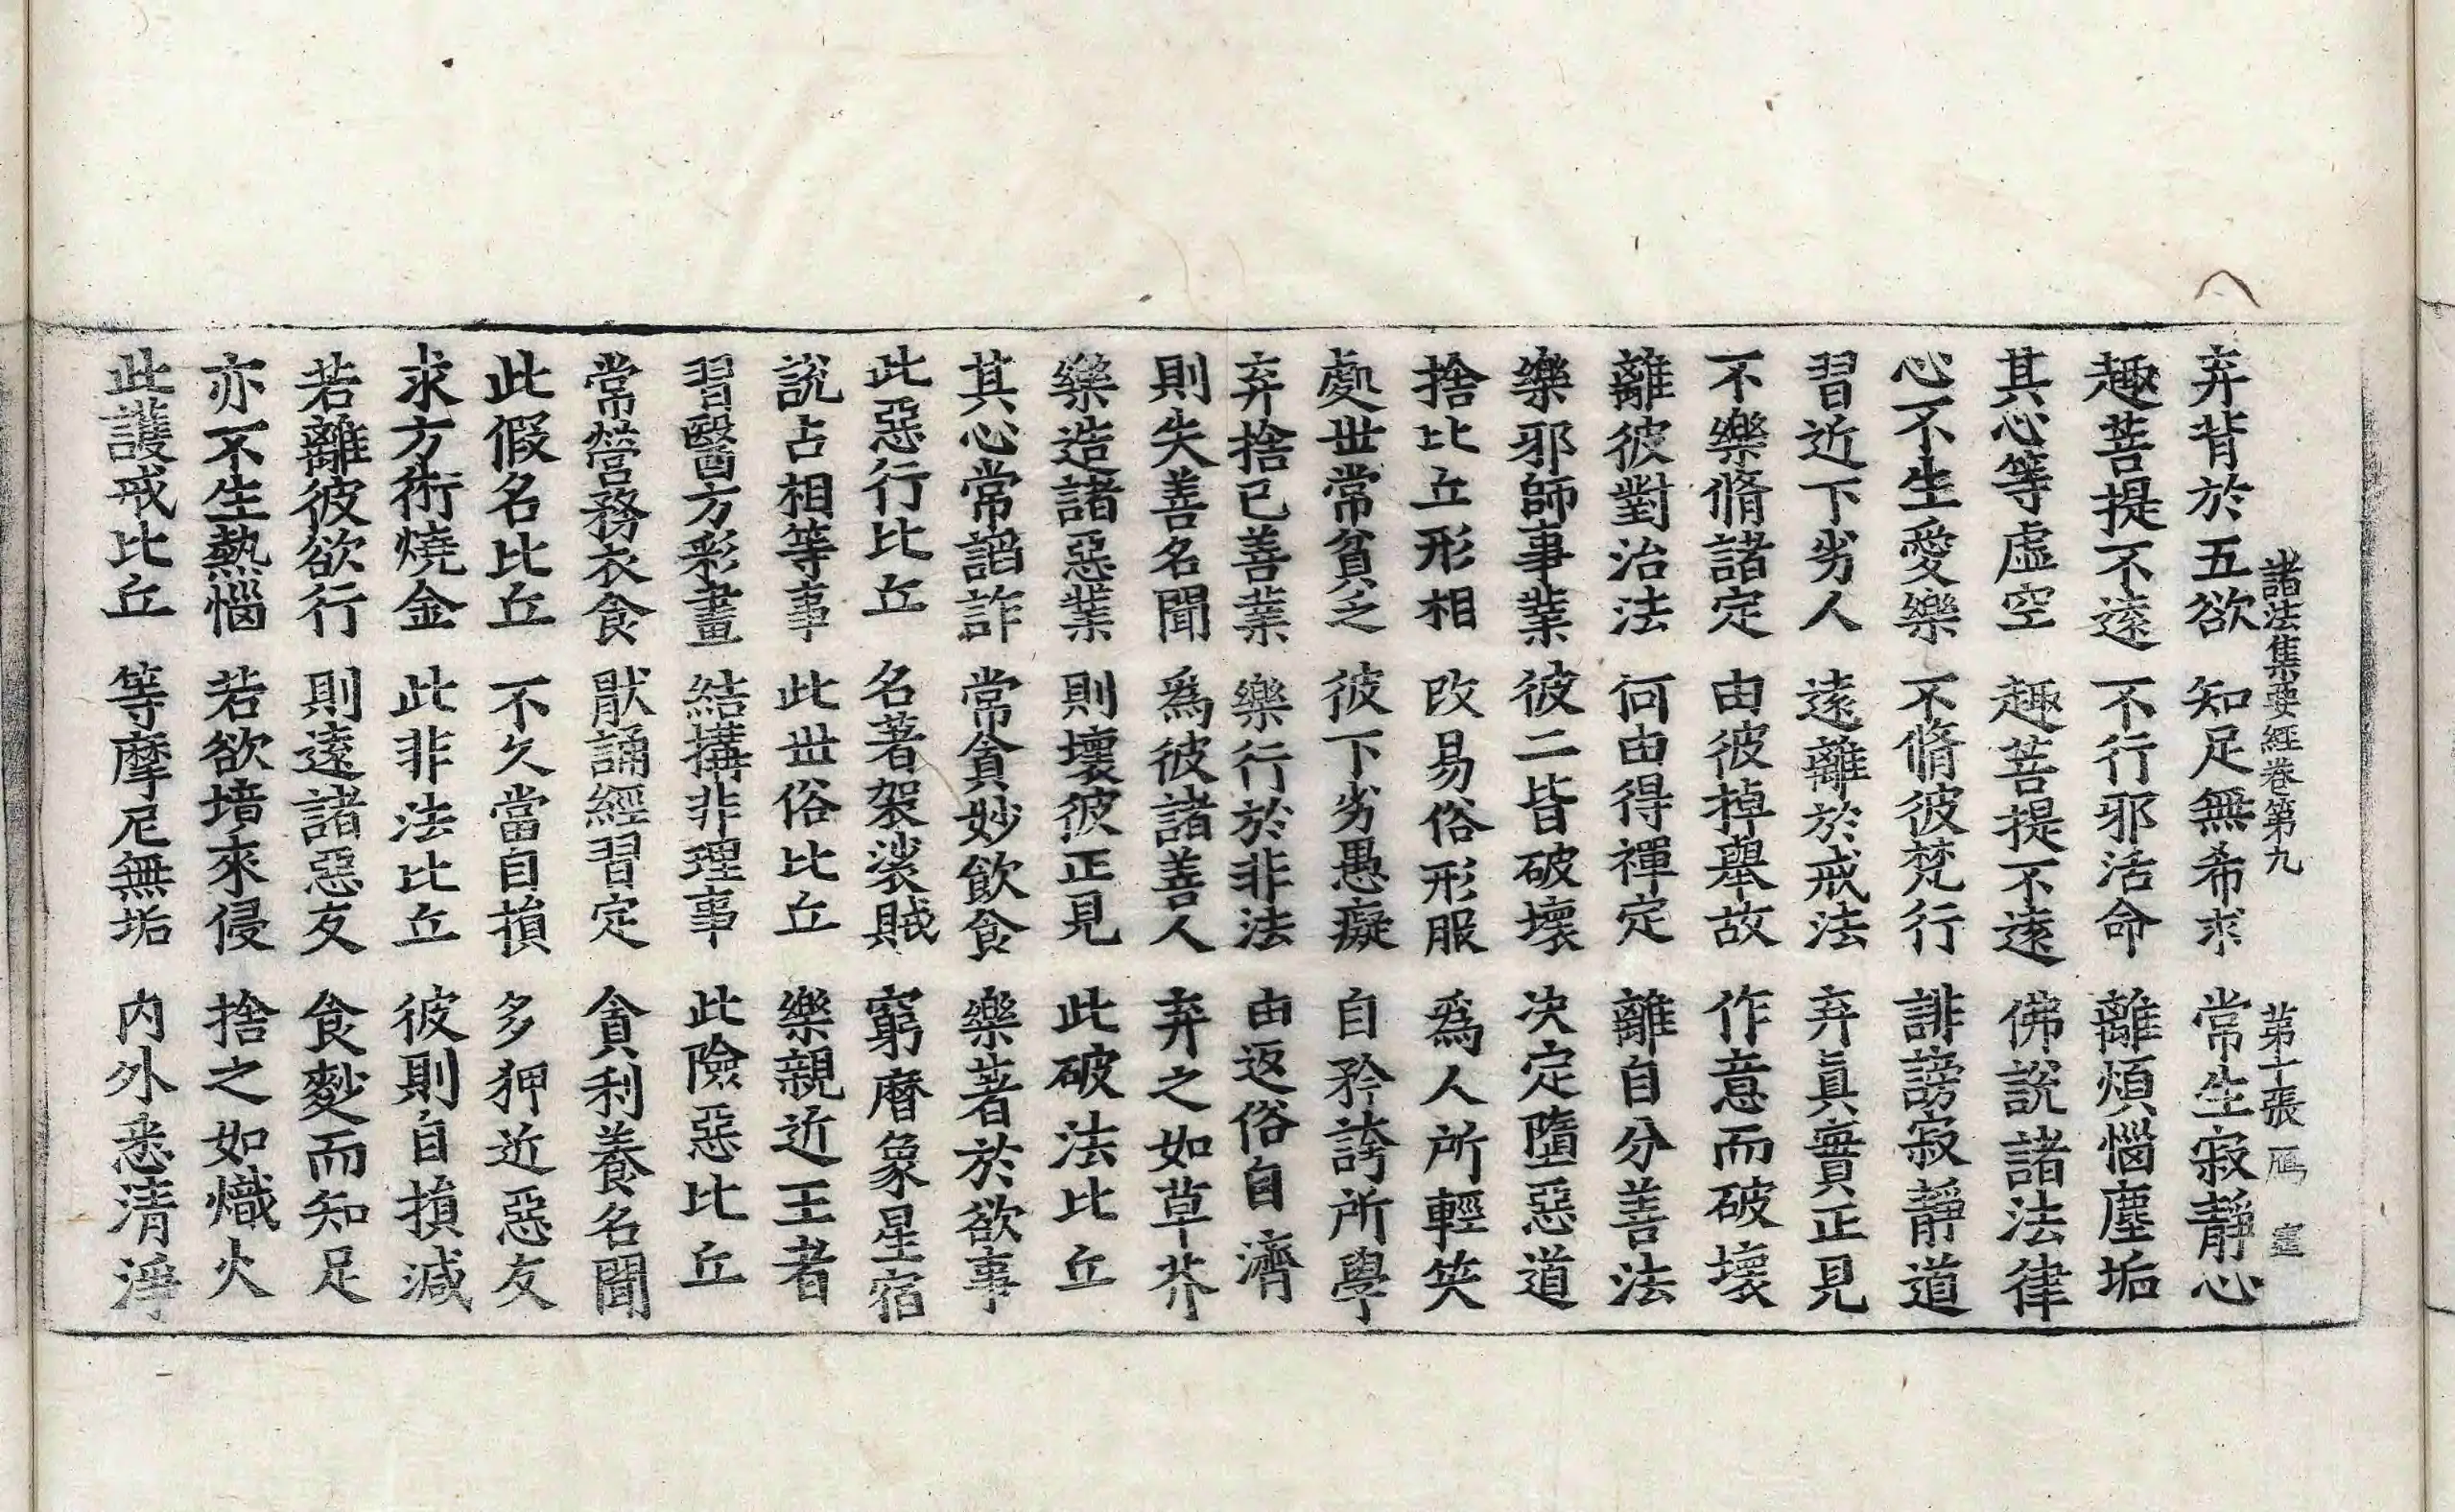 諸法集要經卷第九 第十張 鴈
弃背於五欲 知足無希求 常生寂靜心
趣菩提不遠 不行邪活命 離煩惱塵垢
其心等虛空 趣菩提不遠 佛說諸法律
心不生愛樂 不脩彼梵行 誹謗寂靜道
習近下劣人 遠離於戒法 弃眞實正見
不樂脩諸定 由彼掉舉故 作意而破壞
離彼對治法 何由得禪定 離自分善法
樂邪師事業 彼二皆破壞 决定墮惡道
捨比丘形相 改易俗形服 爲人所輕笑
處世常貧乏 彼下劣愚癡 自矜誇所學
弃捨已善業 樂行於非法 由返俗自濟
則失善名聞 爲彼諸善人 弃之如草芥
樂造諸惡業 則壞彼正見 此破法比丘
其心常諂詐 常貪妙飲食 樂著於欲事
此惡行比丘 名著袈裟賊 窮曆象星宿
說占相等事 此世俗比丘 樂親近王者
習醫方彩畫 結搆非理事 此險惡比丘
常營務衣食 猒誦經習定 貪利養名聞
此假名比丘 不久當自損 多狎近惡友
求方術燒金 此非法比丘 彼則自損減
若離彼欲行 則遠諸惡友 食麨而知足
亦不生熱惱 若欲境來侵 捨之如熾火
此護戒比丘 等摩尼無垢 内外悉清淨